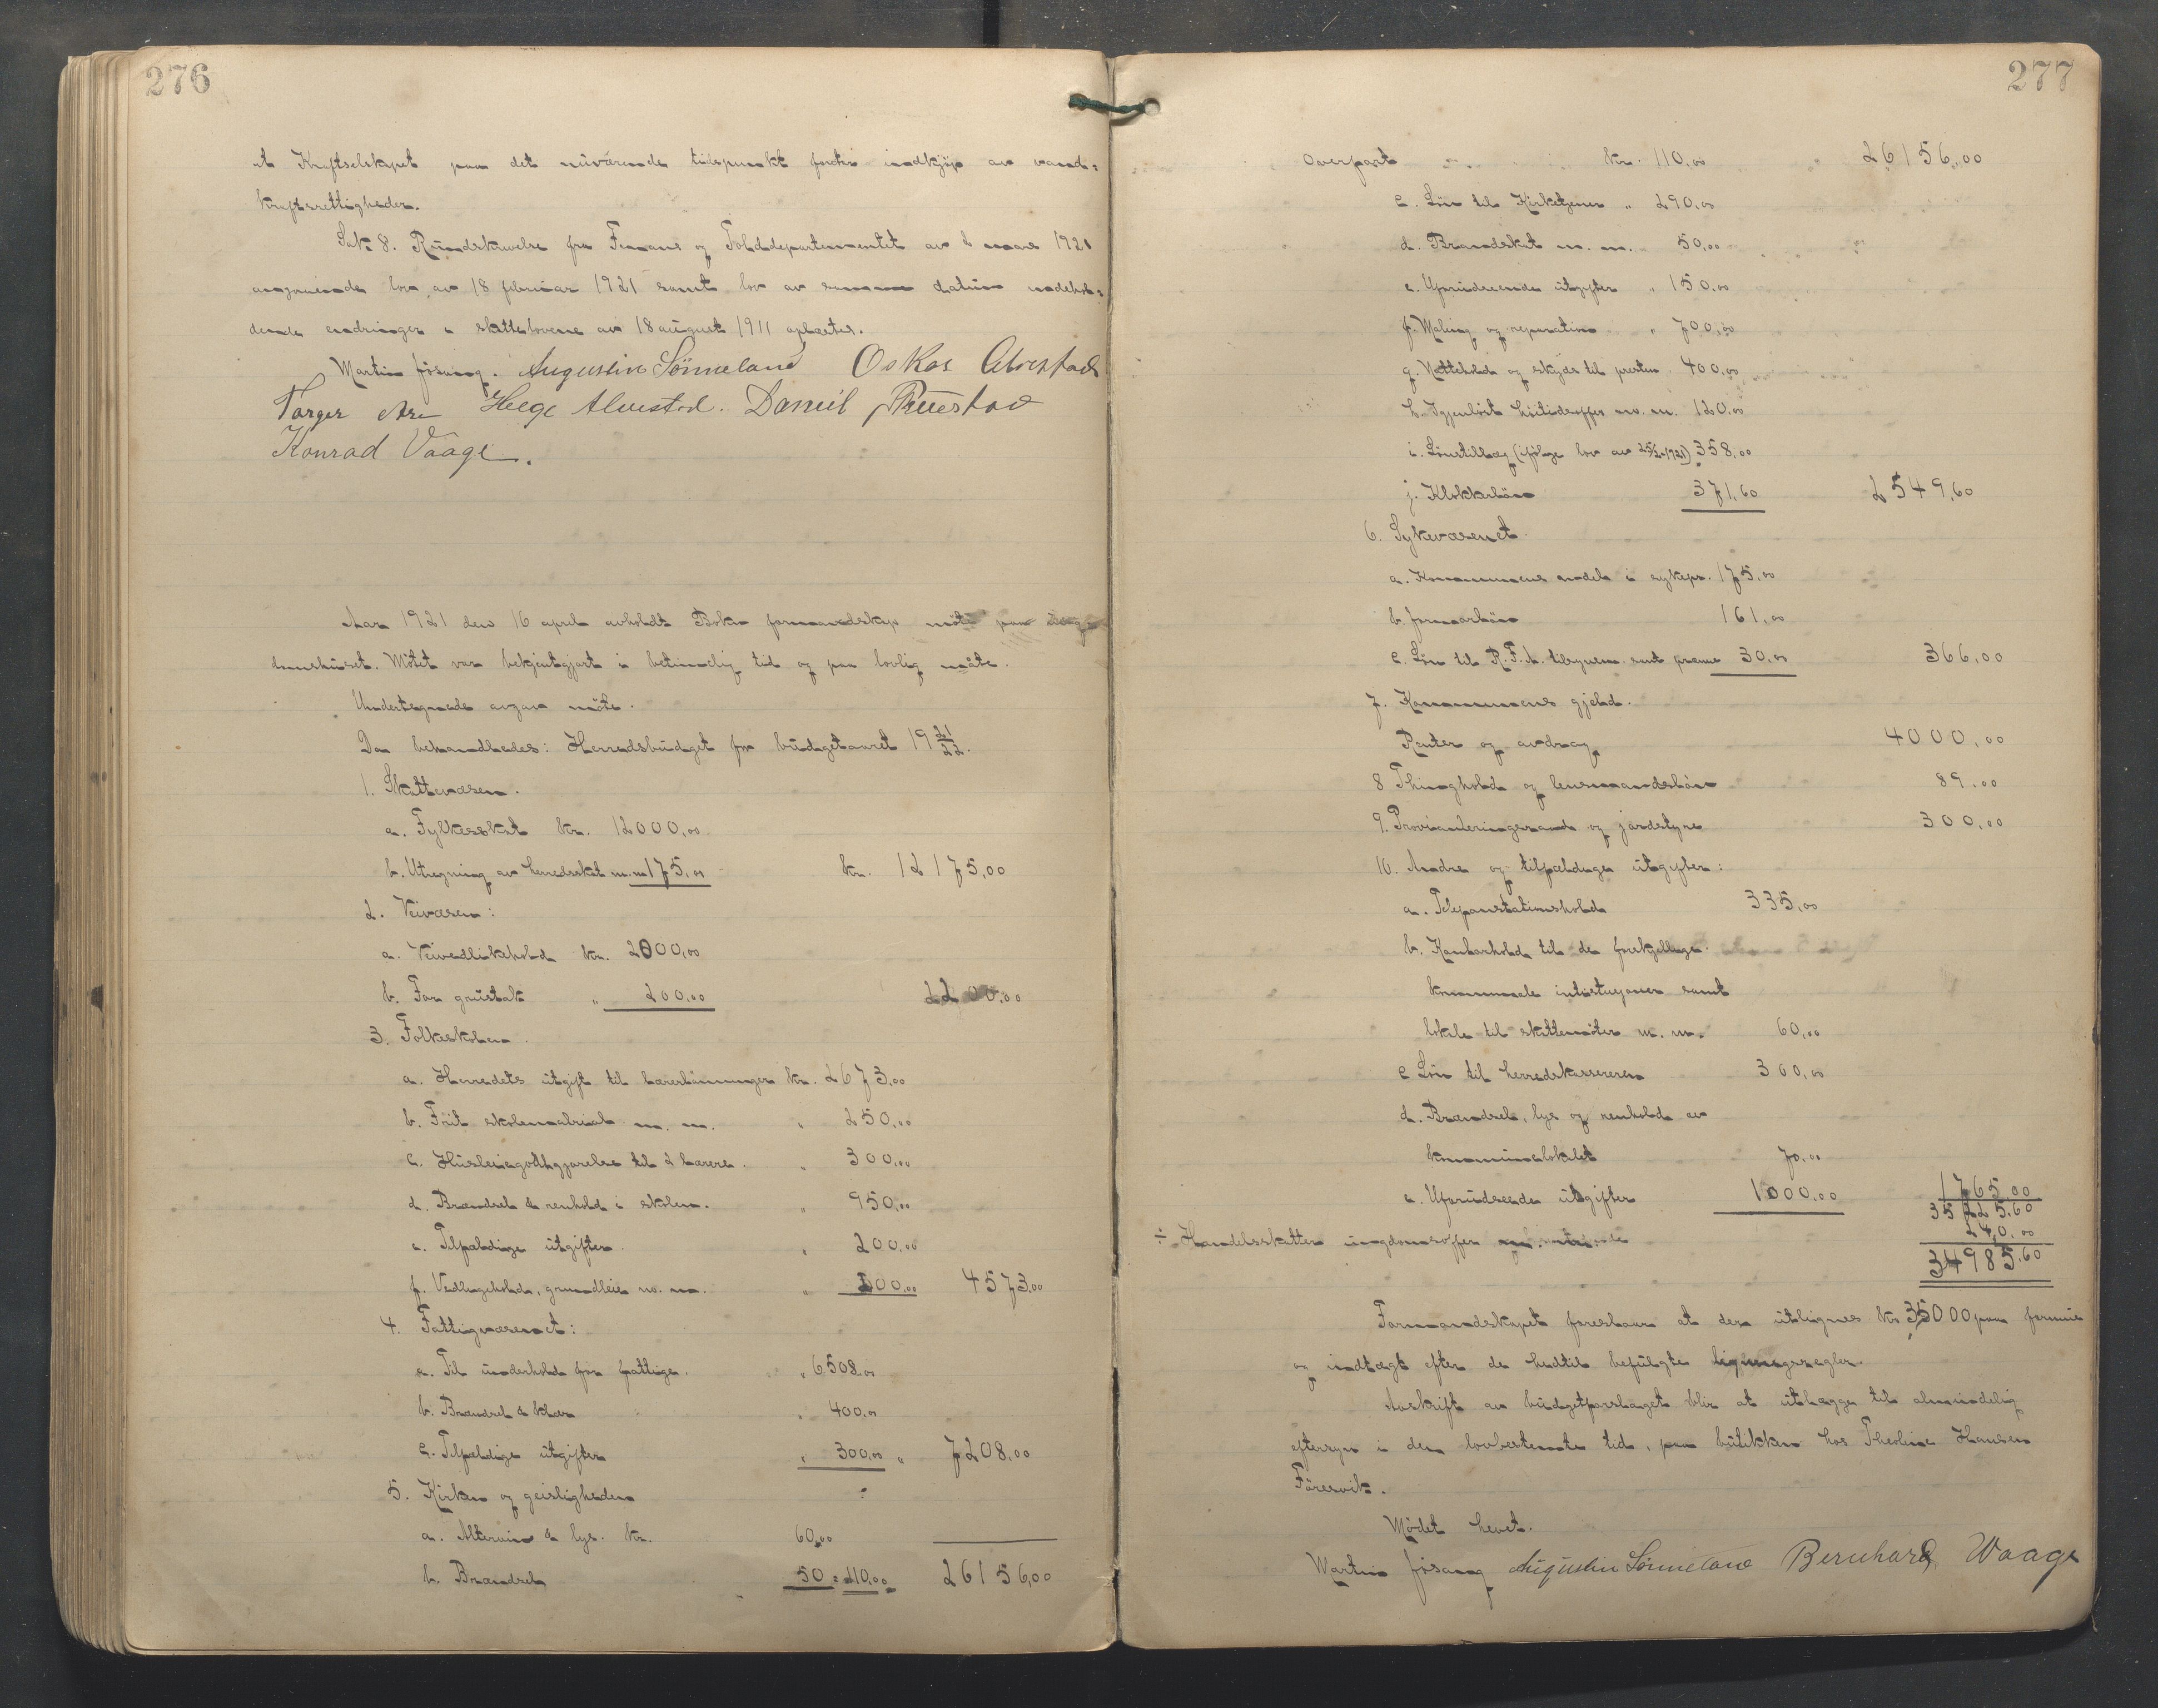 276
at Kraftselskapet paa det nuværende tidspunkt foretar indkjøp av vand=
kraftsrettigheder.
Sak 8. Rundskrivelse fra Finans og Tolddepartementet av 2 mars 1921
angaaende lov av 18 februar 1921 samt lov av samme datum indehol=
dende endringer i skattelovene av 18 august 1911 oplæstes.
Martin Jøsang. Augustin Sönneland Oskar Alvestad
Torger Are Helge Alvestad. Daniel
Konrad Vaage.
Aar 1921 den 16 april avholdt Bokn formandskap möte paa
domshuset. Mötet var bekjentgjort i betimelig tid og paa lovlig måte.
Undertegnede avgav möte.
Da behandledes: Herredsbudget for budgetaaret 19 21/22.
1. Skattevæsen.
a. Fylkesskat kr. 12000,00
b. Utregning av herredsskat m.m 175,00 kr. 12175,00
2. Veivæsen:
a. Veivedlikehold kr. 2000,00
b. For grustak " 200,00 2200,00
3. Folkeskolen.
a. Herredets utgift til lærerlönninger kr. 2673,00
b. Frit skolemateriel m. m. " 250,00
c. Husleiegodtgjørelse til 2 lærere. " 300,00
d. Brændsel & renhold i skolen. " 950,00
e. Tilfældige utgifter. " 200,00
f. Vedlikehold, grundleie m. m. " 200,00 4573,00
4. Fattigvæsenet:
a. Til underhold for fattige. " 6508,00
b. Brændsel & klær " 400,00
c. Tilfældige utgifter " 300,00 " 7208,00
5. Kirken og geistligheden
a. Altervin & lys. kr. 60,00
b. Brændsel 50 = 110,00 26156,00
277
Overført kr. 110,00 26156,00
c. Løn til Kirketjener " 290,00
d. Brandskat m. m. " 50,00
e. Uforudseende utgifter " 150,00
f. Maling og reparation " 700,00
g. Nattehold og skyds til presten 400,00
h. Igjenløst høitidsoffer m. m. 120,00
i. Lønstillæg (ifølge lov av 25/2-1921) 358,00
j. Klokkerløn 371,60 2549,60
6. Sykevæsenet
a. Kommunens andel i sykepr. 175,00
b. Jormorløn 161,00
c. Løn til R.F.A. tilsynsm. samt præmie 30,00 366,00
7. Kommunens gjeld.
Renter og avdrag 4000,00
8 Thinghold og lensmandsløn 89,00
9. Provianteringsraad og jordstyre 300,00
10. Andre og tilfældige utgifter:
a. Telefonstationshold 335,00
b. Kontorhold til de forskjellige
kommunale intistusjoner samt
lokale til skattemøter m. m. 60,00
c Løn til herredskassereren 300,00
d. Brændsel, lys og renhold av
kommunelokalet 70,00
e. Uforudseende utgifter 1000,00 1765,00
35225,60
÷ Handelsskatter ungdomsoffer 240,00
34985,60
Formandskapet foreslaar at der utlignes kr 35000 paa formue
og indtægt efter de hidtil befulgte ligningsregler.
Avskrift av budgetforslaget blir at utlægge til almindelig
eftersyn i den lovbestemte tid, paa butikken hos Theoline Hansen
Føresvik.
Mødet hevet.
Martin Jøsang Augustin Sönneland Bernhard Waage